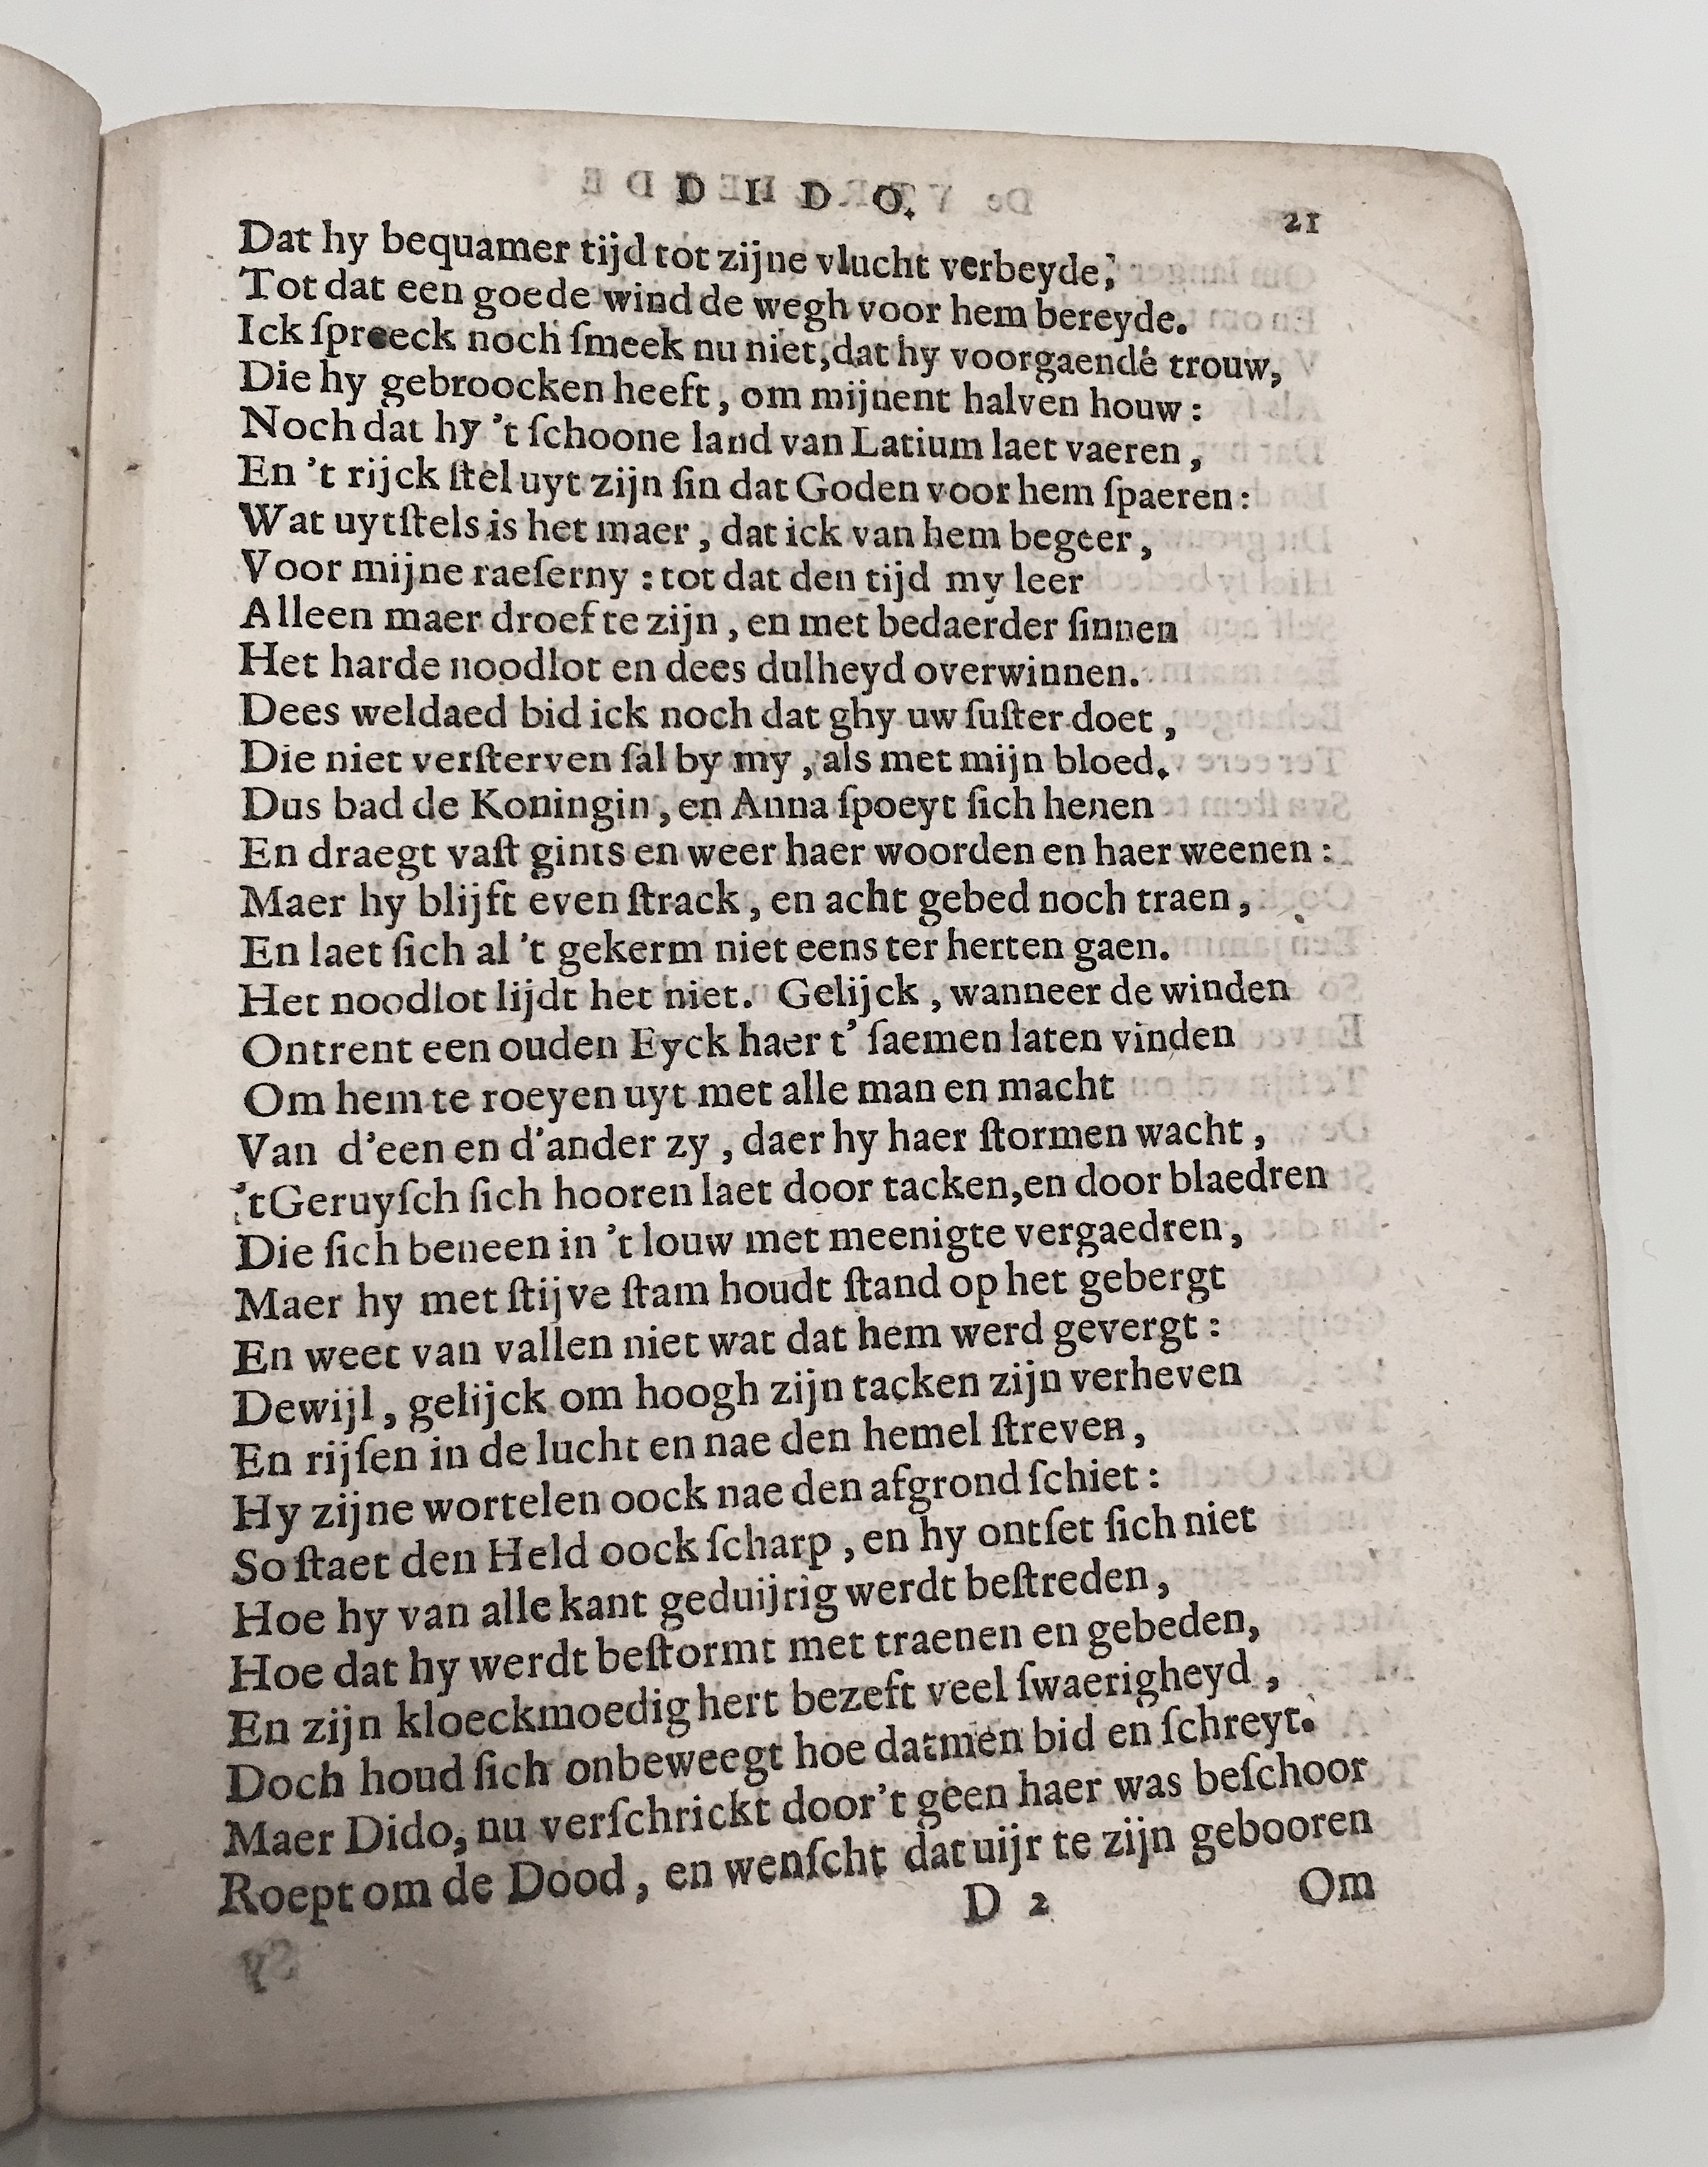 D I D O.
21
Dat hy bequamer tijd tot zijne vlucht verbeyde;
Tot dat een goede wind de wegh voor hem bereyde.
Ick ſpreeck noch ſmeek nu niet, dat hy voorgaende trouw,
Die hy gebroocken heeft, om mijnent halven houw:
Noch dat hy 't ſchoone land van Latium laet vaeren,
En 't rijck ſtel uyt zijn ſin dat Goden voor hem ſpaeren:
Wat uytſtels is het maer, dat ick van hem begeer,
Voor mijne raeſerny: tot dat den tijd my leer
Alleen maer droef te zijn, en met bedaerder ſinnen
Het harde noodlot en dees dulheyd overwinnen.
Dees weldaed bid ick noch dat ghy uw ſuſter doet,
Die niet verſterven ſal by my, als met mijn bloed.
Dus bad de Koningin, en Anna ſpoeyt ſich henen
En draegt vaſt gints en weer haer woorden en haer weenen:
Maer hy blijft even ſtrack, en acht gebed noch traen,
En laet ſich al 't gekerm niet eens ter herten gaen.
Het noodlot lijdt het niet. Gelijck, wanneer de winden
Ontrent een ouden Eyck haer t' ſaemen laten vinden
Om hem te roeyen uyt met alle man en macht
Van d'een en d'ander zy, daer hy haer ſtormen wacht,
't Geruyſch ſich hooren laet door tacken, en door blaedren
Die ſich beneen in 't louw met meenigte vergaedren,
Maer hy met ſtijve ſtam houdt ſtand op het gebergt
En weet van vallen niet wat dat hem werd gevergt:
Dewijl, gelijck om hoogh zijn tacken zijn verheven
En rijſen in de lucht en nae den hemel ſtreven,
Hy zijne wortelen oock nae den afgrond ſchiet:
So ſtaet den Held oock ſcharp, en hy ontſet ſich niet
Hoe hy van alle kant geduijrig werdt beſtreden,
Hoe dat hy werdt beſtormt met traenen en gebeden,
En zijn kloeckmoedig hert bezeft veel ſwaerigheyd,
Doch houd ſich onbeweegt hoe datmen bid en ſchreyt.
Maer Dido, nu verſchrickt door't geen haer was beſchoor
Roept om de Dood, en wenſcht dat uijr te zijn gebooren
D 2
Om